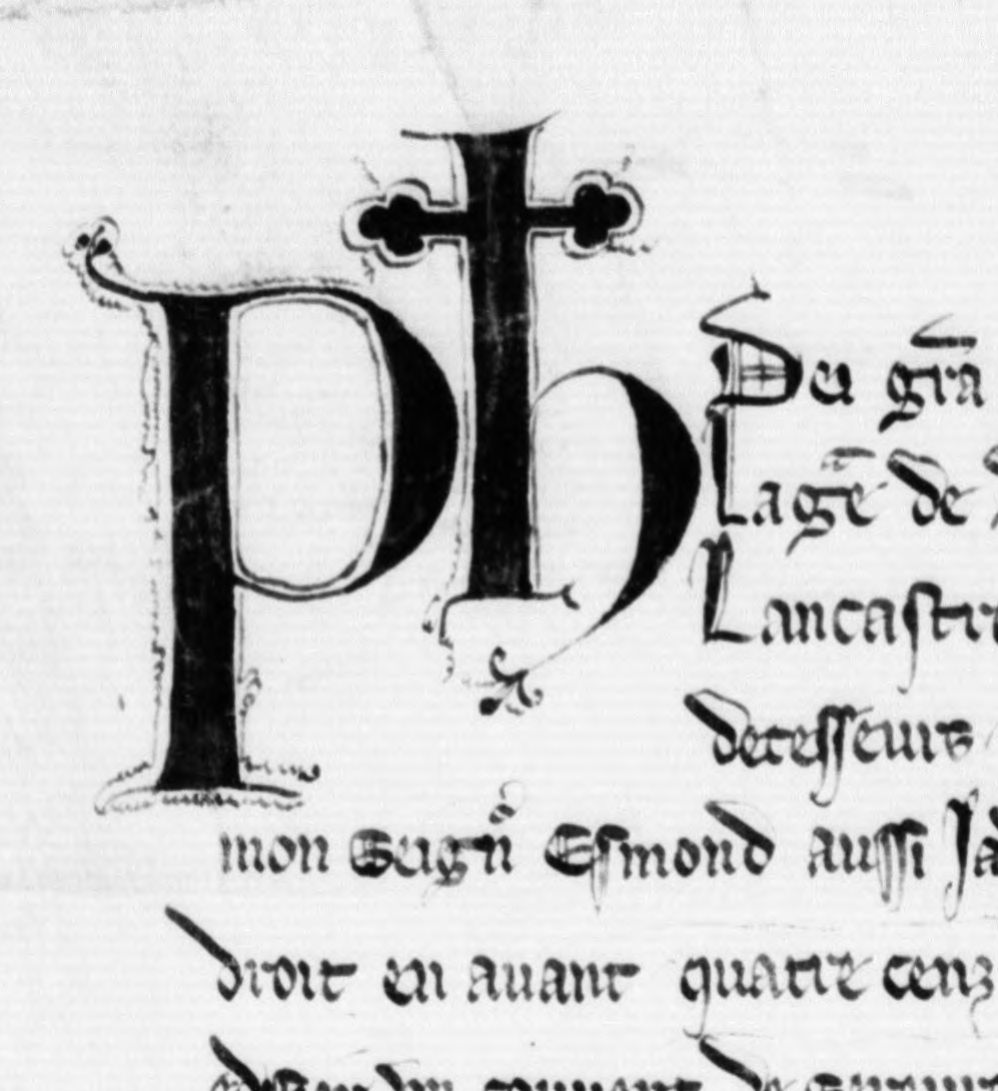 Ph Dei gr̄a
Lage de
Lancastre
decesseurs
mon Seign̄ Esmond aussi Ja
droit en auant quatre cenz